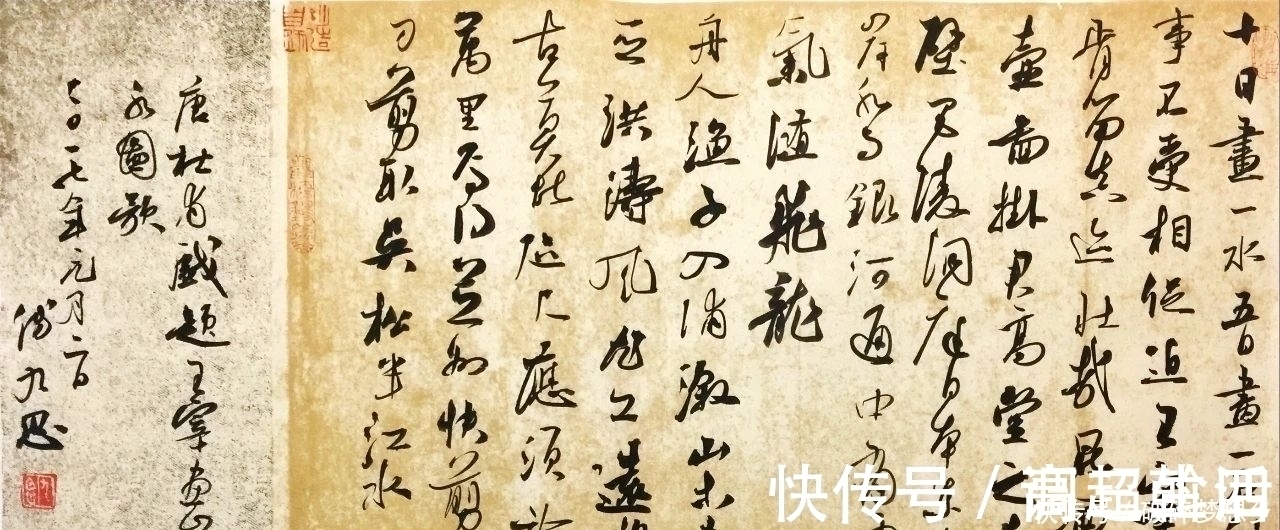 十日畫一水五日畫一
事不受相促迫王宰
肯留真迹壯哉昆
壺圖掛君高堂之
壁巴陵洞庭日本
岸水與銀河通中有
氣隨飛龍
舟人漁子入浦溆山木
亞洪濤風尤工遠
古莫比咫尺應須論
萬里焉得并州快剪
刀剪取吳松半江水
唐杜甫戲題王宰畫山
水圖歌
二〇一七年元月二日
九思
快传号 /